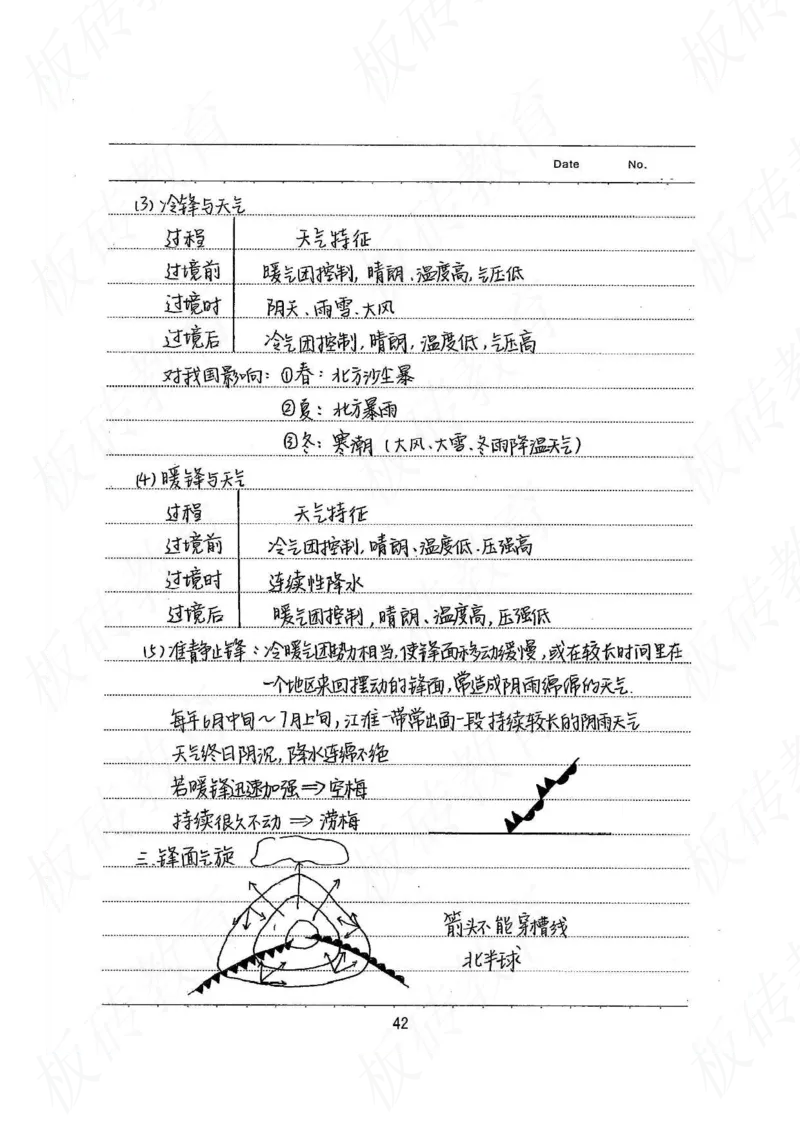 Date No.
(3)冷锋与天气
过程 天气特征
过境前 暖气团控制,晴朗、温度高,气压低
过境时 阴天、雨雪、大风
过境后 冷气团控制,晴朗,温度低,气压高
对我国影响:①春:北方沙尘暴
②夏:北方暴雨
③冬:寒潮(大风、大雪、冬雨降温天气)
(4)暖锋与天气
过程 天气特征
过境前 冷气团控制,晴朗、温度低、压强高
过境时 连续性降水
过境后 暖气团控制,晴朗、温度高,压强低
(5)准静止锋:冷暖气团势力相当,使锋面移动缓慢,或在较长时间里在
一个地区来回摆动的锋面,常造成阴雨绵绵的天气.
每年6月中旬~7月上旬,江淮一带常出面一段持续较长的阴雨天气
天气终日阴沉,降水连绵不绝
若暖锋迅速加强⇒空梅
持续很久不动⇒涝梅
三.锋面气旋
箭头不能穿槽线
北半球
42
板砖教育